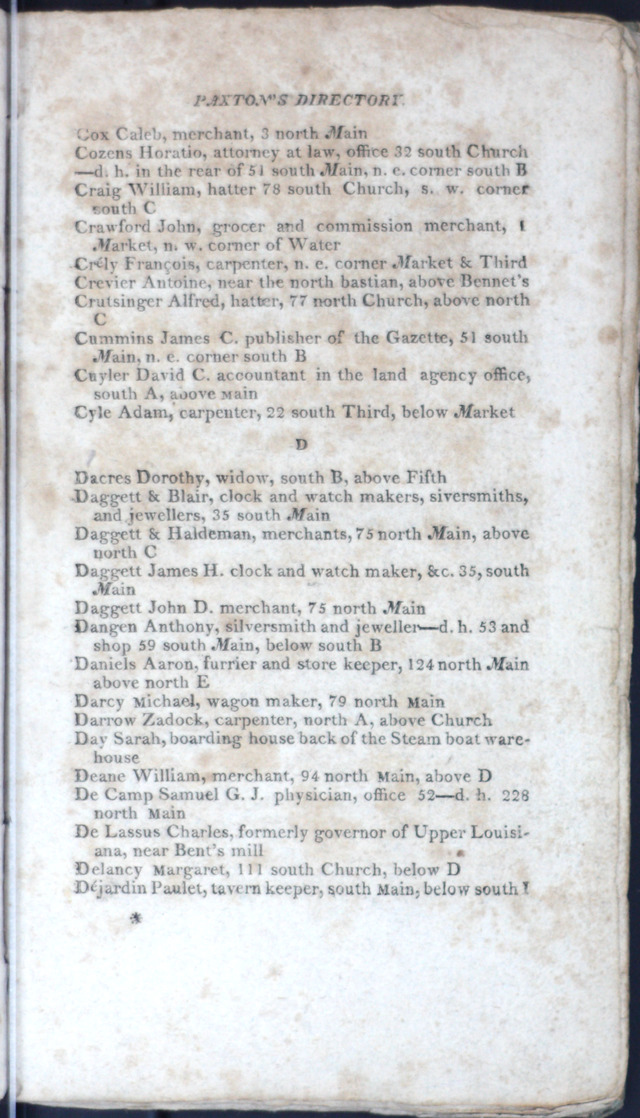 PAXTON'S DIRECTORY.
Cox Caleb, merchant, 3 north Main
Cozens Horatio, attorney at law, office 32 south Church
—d. h. in the rear of 51 south Main, n. e. corner south B
Craig William, hatter 78 south Church, s. w. corner
south C
Crawford John, grocer and commission merchant, 1
Market, n. w. corner of Water
Crély François, carpenter, n. e. corner Market & Third
Crevier Antoine, near the north bastian, above Bennet's
Crutsinger Alfred, hatter, 77 north Church, above north
C
Cummins James C. publisher of the Gazette, 51 south
Main, n. e. corner south B
Cuyler David C. accountant in the land agency office,
south A, above Main
Cyle Adam, carpenter, 22 south Third, below Market
D
Dacres Dorothy, widow, south B, above Fifth
Daggett & Blair, clock and watch makers, siversmiths,
and jewellers, 35 south Main
Daggett & Haldeman, merchants, 75 north Main, above
north C
Daggett James H. clock and watch maker, &c. 35, south
Main
Daggett John D. merchant, 75 north Main
Dangen Anthony, silversmith and jeweller—d. h. 53 and
shop 59 south Main, below south B
Daniels Aaron, furrier and store keeper, 124 north Main
above north E
Darcy Michael, wagon maker, 79 north Main
Darrow Zadock, carpenter, north A, above Church
Day Sarah, boarding house back of the Steam boat ware-
house
Deane William, merchant, 94 north Main, above D
De Camp Samuel G. J. physician, office 52—d. h. 228
north Main
De Lassus Charles, formerly governor of Upper Louisi-
ana, near Bent's mill
Delancy Margaret, 111 south Church, below D
Déjardin Paulet, tavern keeper, south Main, below south
*